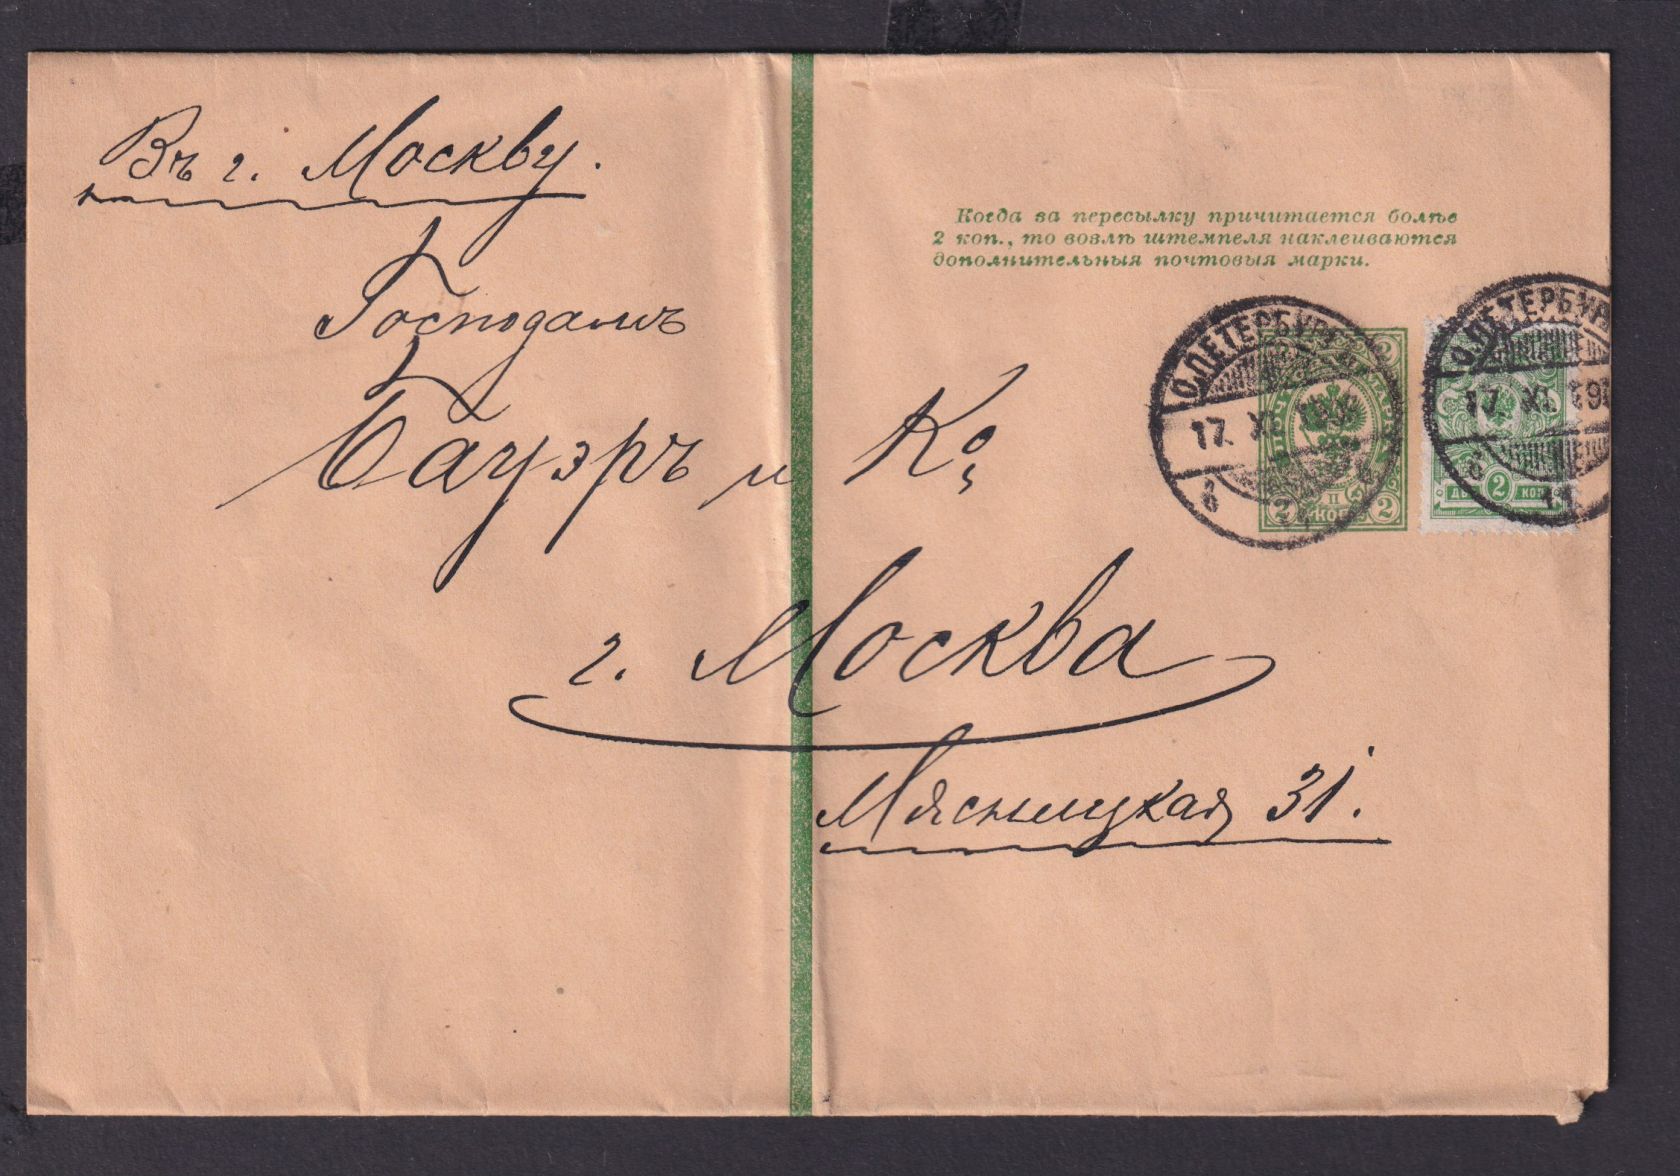 Въ г. Москву.
Господамъ
Бауэръ и Ко
г. Москва
Мясницкая 31.
Когда за пересылку причитается болѣе
2 коп., то возлѣ штемпеля наклеиваются
дополнительныя почтовыя марки.
С.ПЕТЕРБУРГ
17. XI.
6
2
2
2
2
КОП
С.ПЕТЕРБУР
17. XI. 190
6
2 КОП